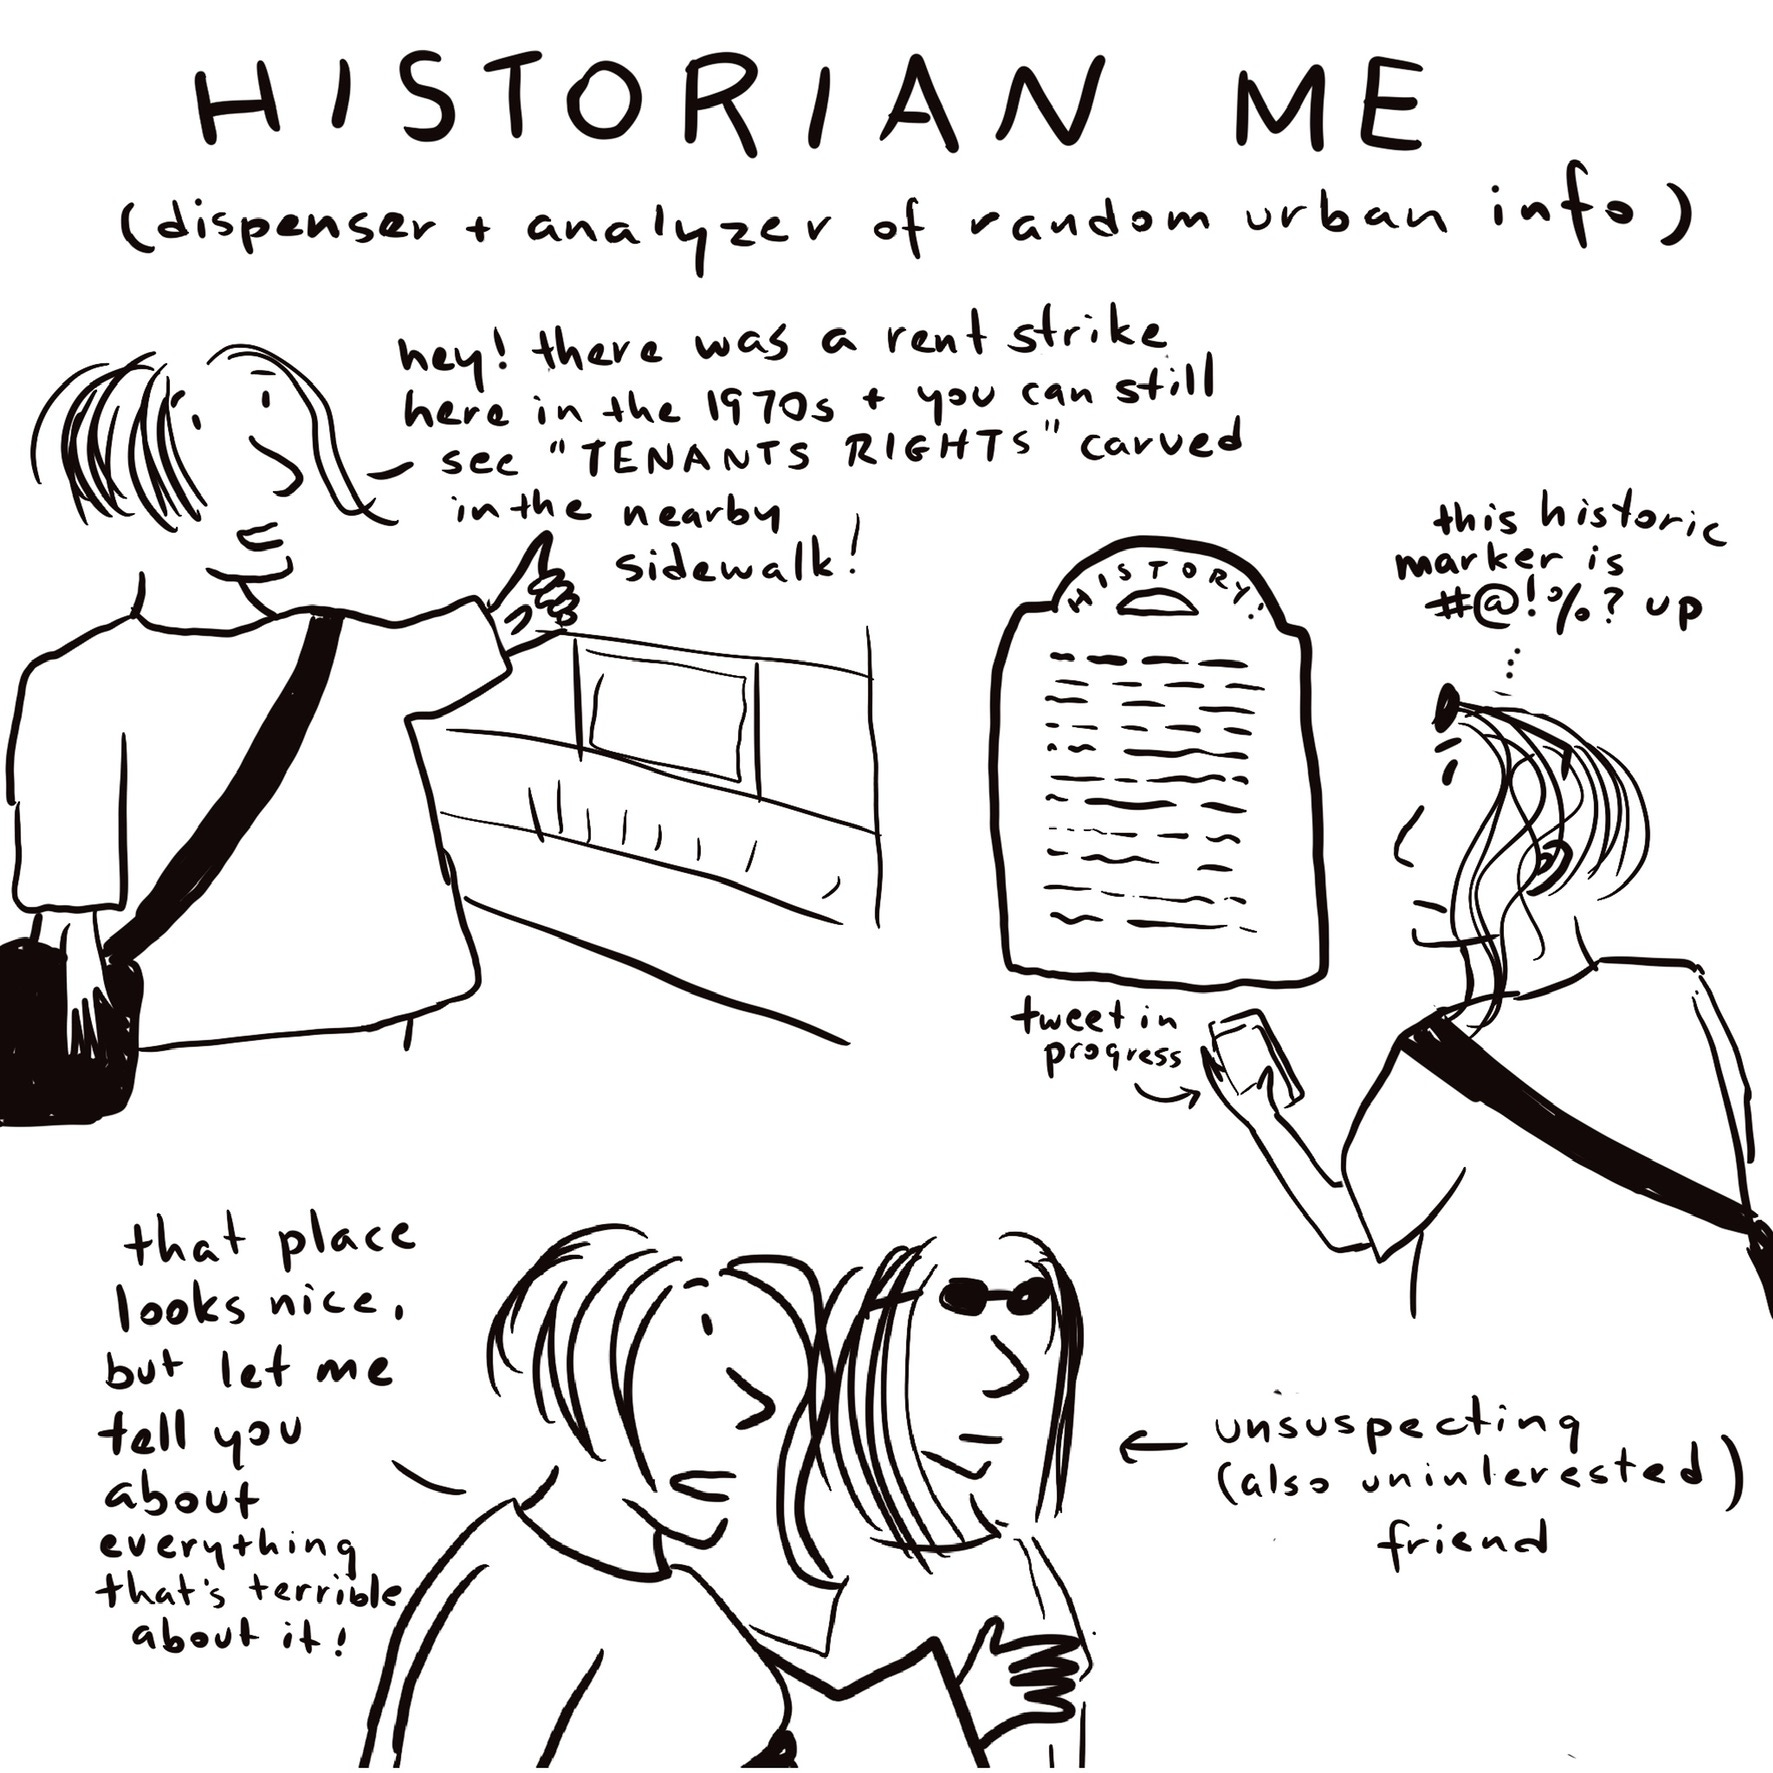 HISTORIAN ME
(dispenser + analyzer of random urban info)
hey! there was a rent strike
here in the 1970s + you can still
see "TENANTS RIGHTS" carved
in the nearby
sidewalk!
HISTORY!
this historic
marker is
#@!%? up
tweet in
progress
that place
looks nice,
but let me
tell you
about
everything
that's terrible
about it!
unsuspecting
(also uninterested)
friend